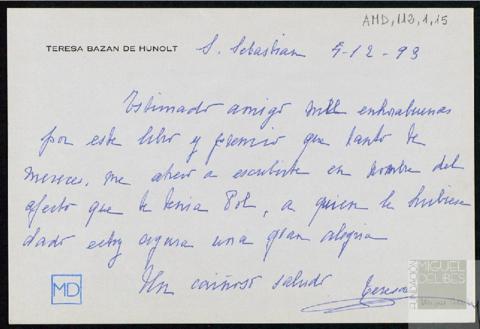 AMD, 113, 1, 15
TERESA BAZAN DE HUNOLT
S. Sebastian 5-12-93
Estimado amigo mil enhorabuenas
por este libro y premio que tanto te
mereces, me atrevo a escribirte en nombre del
afecto que te tenia Pol, a quien le hubiese
dado estoy segura una gran alegria
Un cariñoso saludo Teresa
MD
FUNDACIÓN
MIGUEL
DELIBES